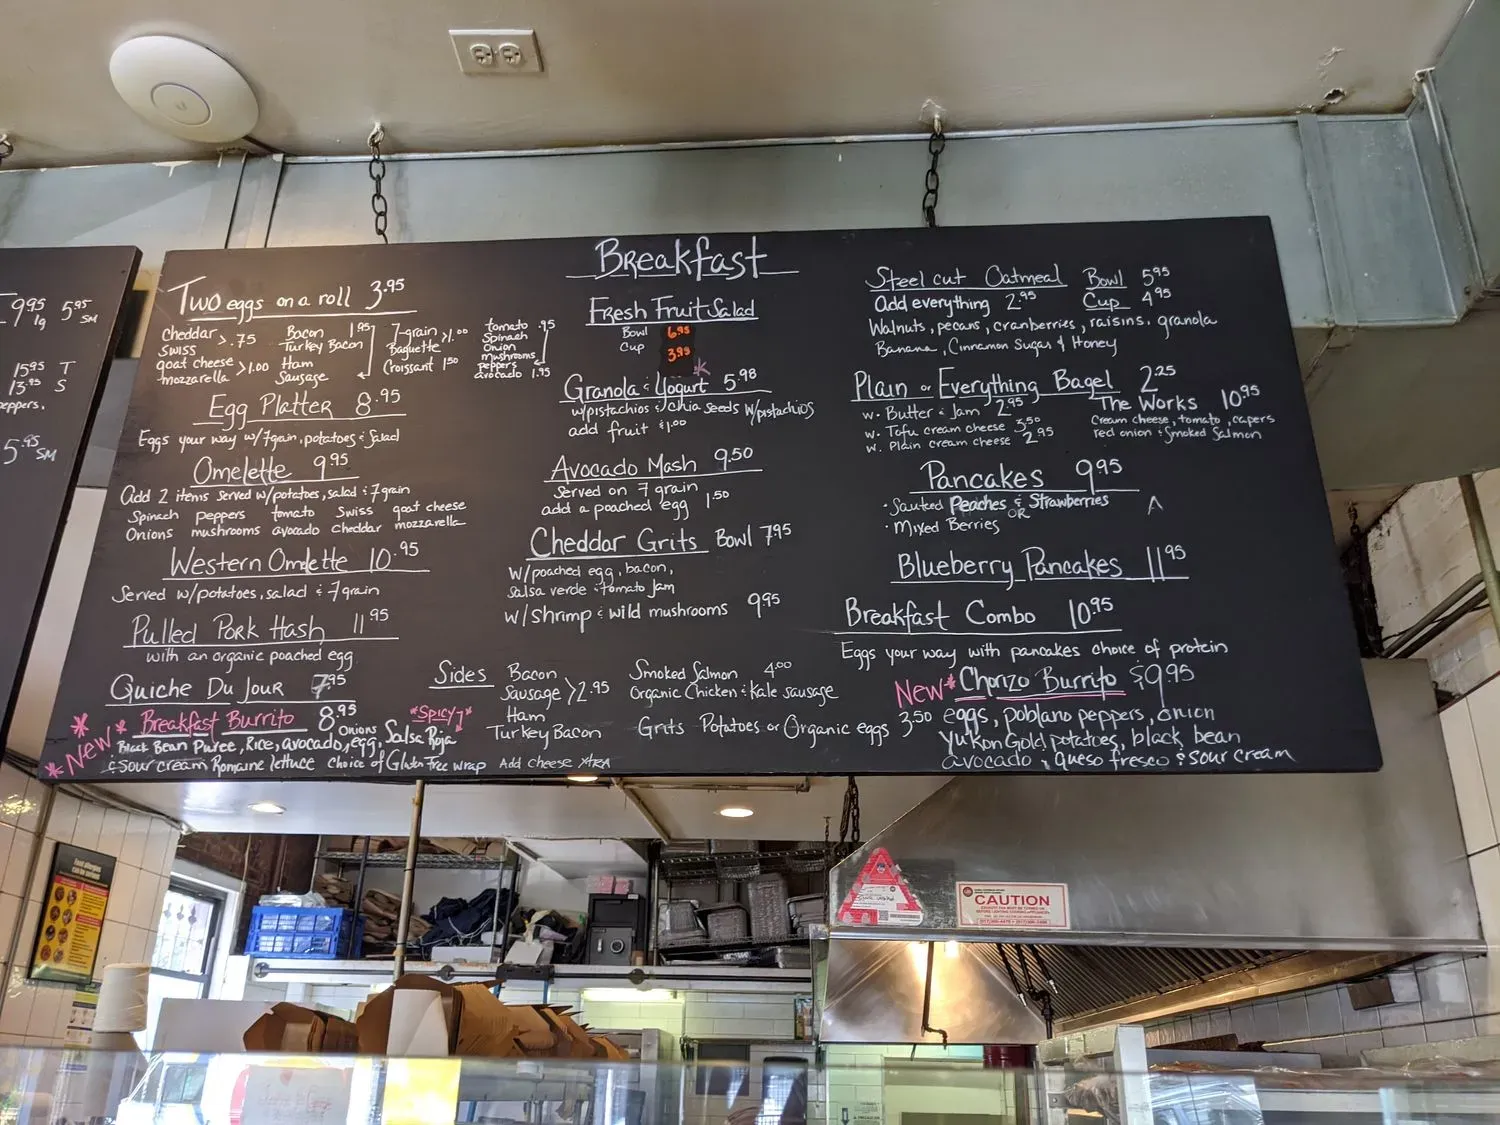 9.95 5.95
lg SM
15.95 T
13.95 S
peppers.
5.95 SM
Breakfast
Two eggs on a roll 3.95
Cheddar
Swiss > .75
goat cheese
mozzarella > 1.00
Bacon 1.95
Turkey Bacon
Ham
Sausage
7-grain
Baguette > 1.00
Croissant 1.50
tomato .95
Spinach
Onion
mushrooms
peppers
avocado 1.95
Egg Platter 8.95
Eggs your way w/7grain, potatoes & Salad
Omelette 9.95
Add 2 items Served w/potatoes, salad & 7 grain
Spinach peppers tomato Swiss goat cheese
Onions mushrooms avocado cheddar mozzarella
Western Omelette 10.95
Served w/potatoes, salad & 7 grain
Pulled Pork Hash 11.95
with an organic poached egg
Quiche Du Jour 7.95
*New* Breakfast Burrito 8.95 *Spicy*
Black Bean Puree, Rice, avocado, egg, Onions Salsa Roja
& Sour cream Romaine lettuce choice of Gluten Free wrap
Fresh Fruit Salad
Bowl 6.95
Cup 3.95
Granola & Yogurt 5.98
w/pistachios & chia seeds w/pistachios
add fruit $1.00
Avocado Mash 9.50
Served on 7 grain
add a poached egg 1.50
Cheddar Grits Bowl 7.95
w/poached egg, bacon,
salsa verde & tomato jam
w/shrimp & wild mushrooms 9.95
Sides
Bacon
Sausage > 2.95
Ham
Turkey Bacon
Add cheese xtra
Smoked Salmon 4.00
Organic Chicken & Kale sausage
Grits Potatoes or Organic eggs 3.50
Steel cut Oatmeal Bowl 5.95
Add everything 2.95 Cup 4.95
Walnuts, pecans, cranberries, raisins, granola
Banana, Cinnamon Sugar & Honey
Plain or Everything Bagel 2.25
w. Butter & Jam 2.95
w. Tofu cream cheese 3.50
w. Plain cream cheese 2.95
The Works 10.95
Cream cheese, tomato, capers
red onion & Smoked Salmon
Pancakes 9.95
· Sauteed Peaches & Strawberries
OR
· Mixed Berries
Blueberry Pancakes 11.95
Breakfast Combo 10.95
Eggs your way with pancakes choice of protein
New* Chorizo Burrito $9.95
eggs, poblano peppers, onion
Yukon Gold potatoes, black bean
avocado & queso fresco & sour cream
CAUTION